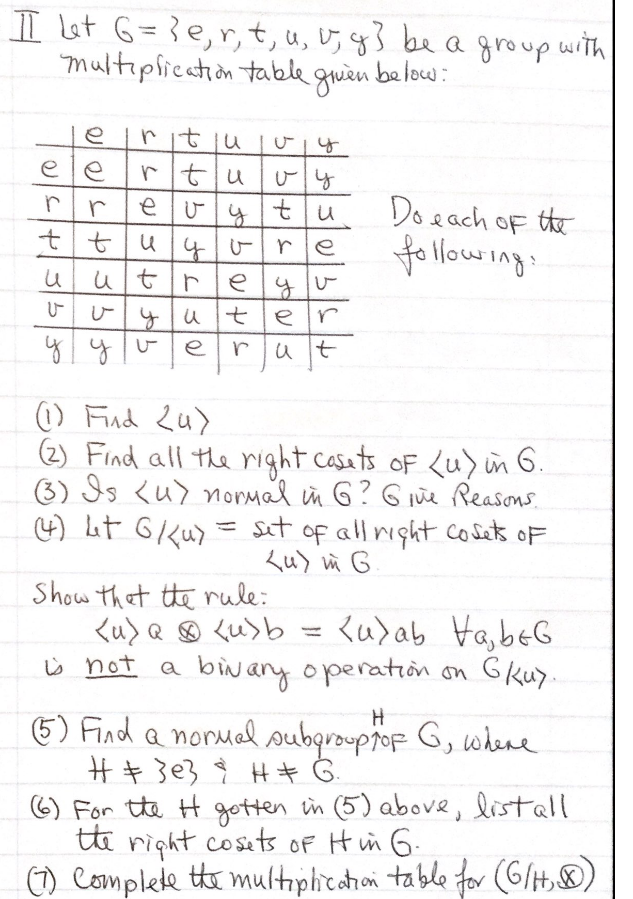 II Let G = {e, r, t, u, v, y} be a group with
multiplication table given below:
e r t u v y
e e r t u v y
r r e v y t u
t t u y v r e
u u t r e y v
v v y u t e r
y y v e r u t
Do each of the
following:
(1) Find <u>
(2) Find all the right cosets of <u> in G.
(3) Is <u> normal in G? Give Reasons.
(4) Let G/<u> = set of all right cosets of
<u> in G.
Show that the rule:
<u>a ⊗ <u>b = <u>ab ∀a,b∈G
is not a binary operation on G/<u>.
(5) Find a normal subgroup H of G, where
H ≠ {e} & H ≠ G.
(6) For the H gotten in (5) above, list all
the right cosets of H in G.
(7) Complete the multiplication table for (G/H, ⊗)